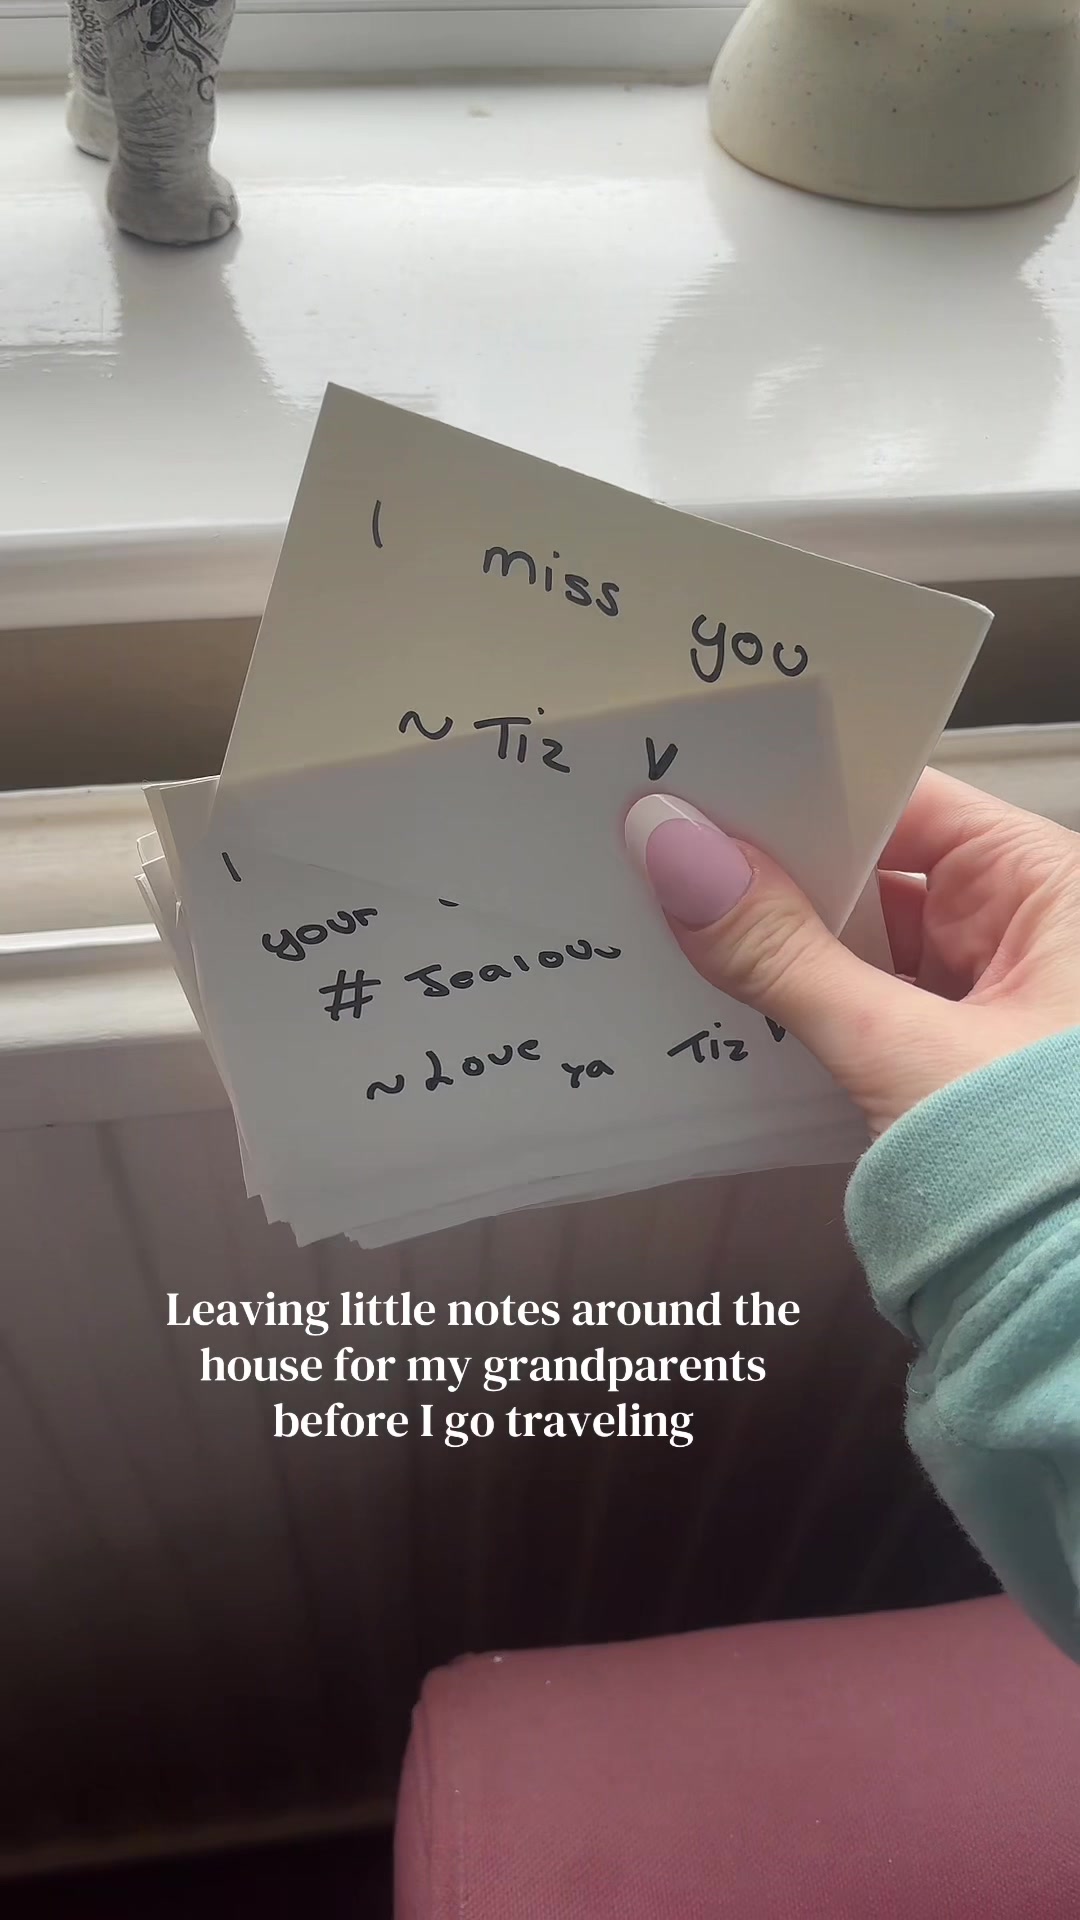 I miss you
~ Tiz
I
your
# Jealous
~ Love ya Tiz
Leaving little notes around the
house for my grandparents
before I go traveling